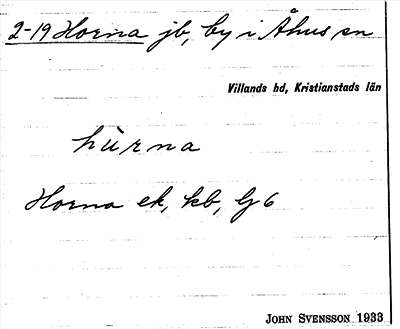 2-19 Horna jb, by i Åhus sn
Villands hd, Kristianstads län
hùrna
Horna ek, kb, G6
JOHN SVENSSON 1933